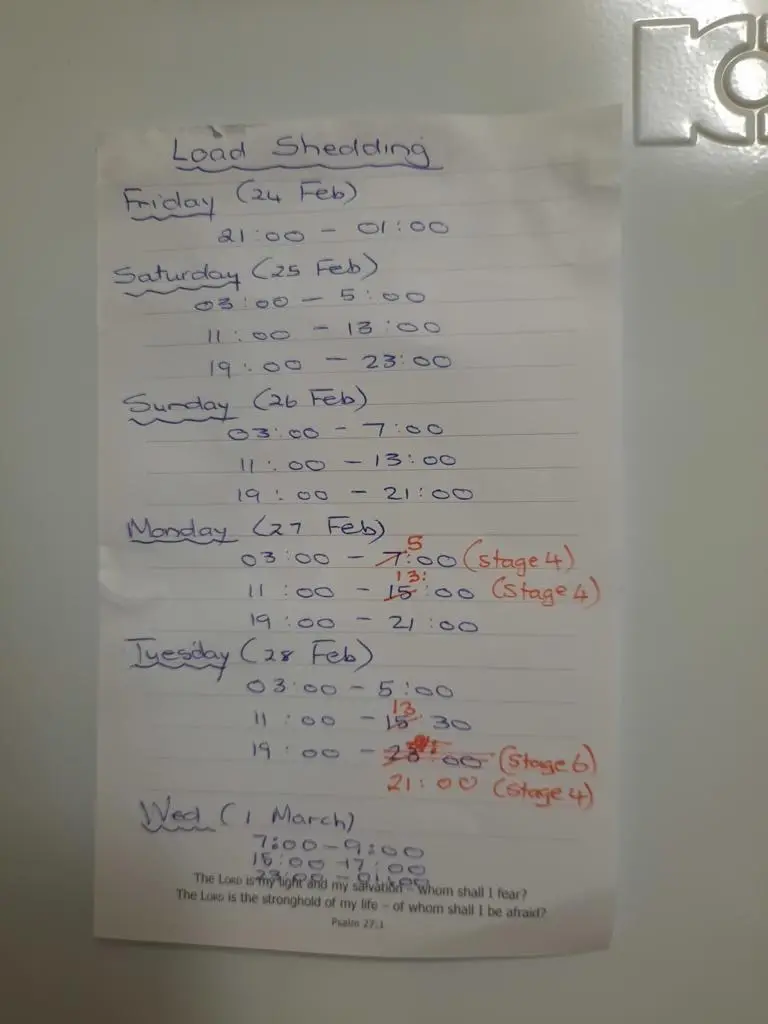 Load Shedding
Friday (24 Feb)
21:00 - 01:00
Saturday (25 Feb)
03:00 - 5:00
11:00 - 13:00
19:00 - 23:00
Sunday (26 Feb)
03:00 - 7:00
11:00 - 13:00
19:00 - 21:00
Monday (27 Feb)
5
03:00 - 7:00 (stage 4)
13:
11:00 - 15:00 (stage 4)
19:00 - 21:00
Tuesday (28 Feb)
03:00 - 5:00
13
11:00 - 15 30
19:00 - 23:00 (stage 6)
21:00 (stage 4)
Wed (1 March)
7:00 - 9:00
15:00 - 17:00
23:00 - 01:00
The LORD is my light and my salvation – whom shall I fear?
The LORD is the stronghold of my life – of whom shall I be afraid?
Psalm 27:1